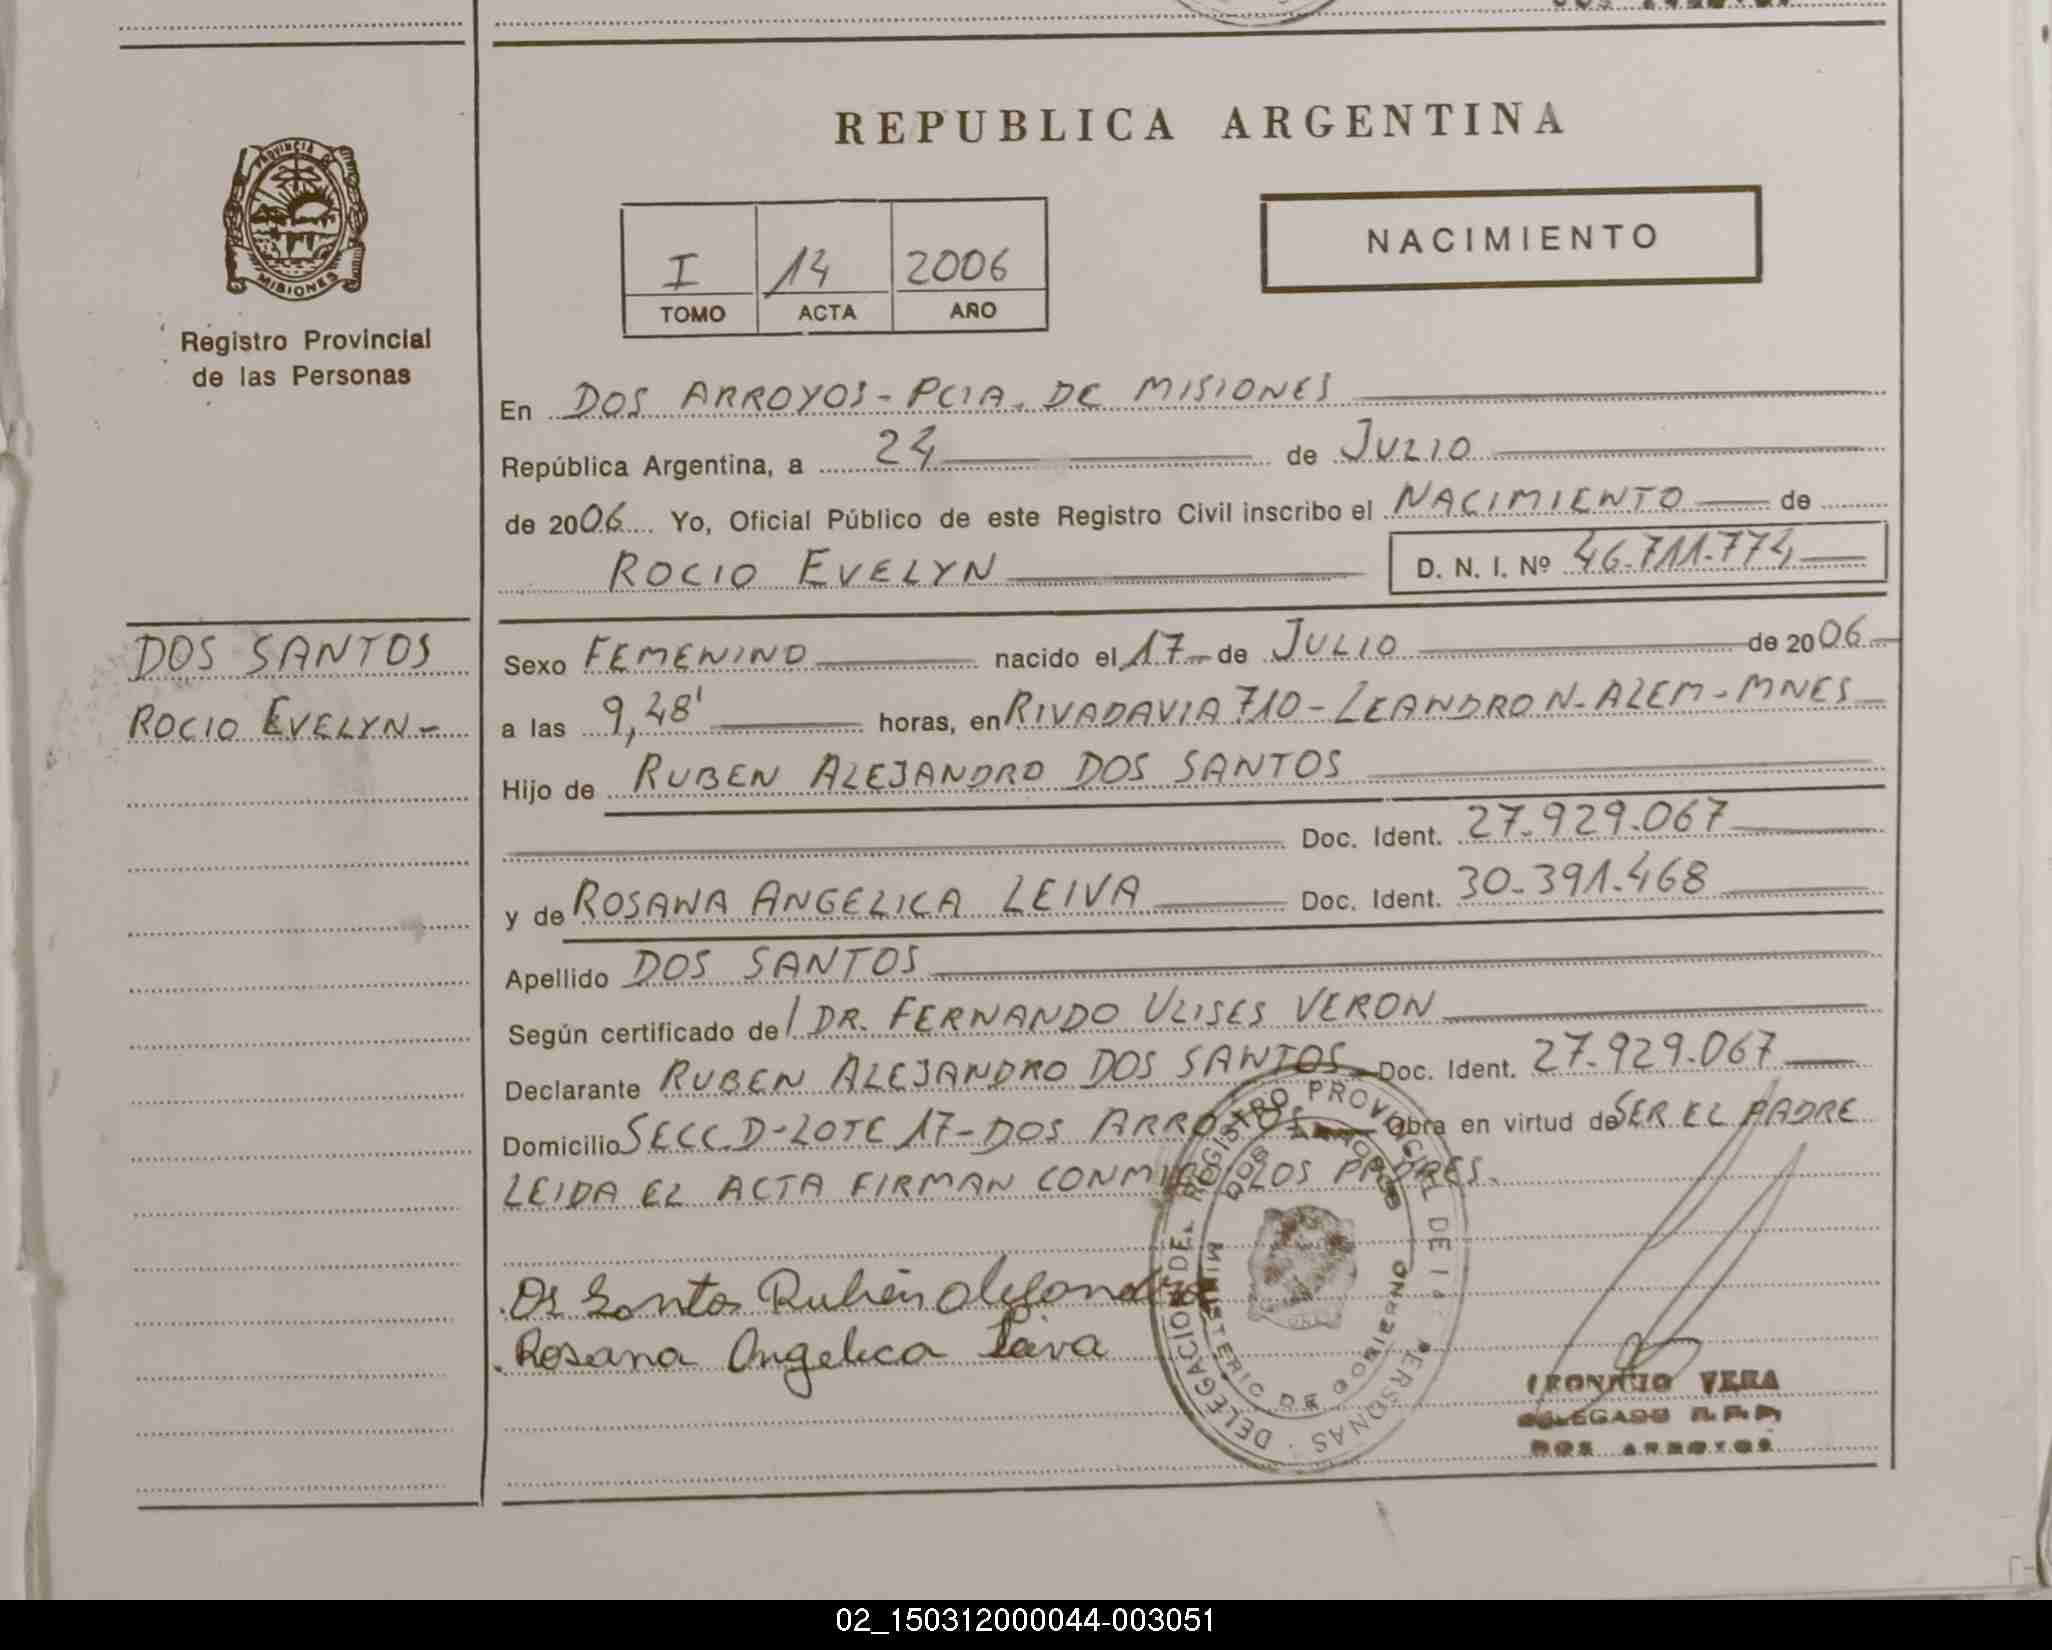 REPUBLICA ARGENTINA
PROVINCIA DE MISIONES
Registro Provincial
de las Personas
I 14 2006
TOMO ACTA AÑO
NACIMIENTO
En DOS ARROYOS - PCIA. DE MISIONES
República Argentina, a 24 de JULIO
de 2006 Yo, Oficial Público de este Registro Civil inscribo el NACIMIENTO de
ROCIO EVELYN D. N. I. Nº 46.711.774
DOS SANTOS
ROCIO EVELYN-
Sexo FEMENINO nacido el 17 de JULIO de 2006
a las 9,48' horas, en RIVADAVIA 710 - LEANDRO N. ALEM - MNES
Hijo de RUBEN ALEJANDRO DOS SANTOS
Doc. Ident. 27.929.067
y de ROSANA ANGELICA LEIVA Doc. Ident. 30.391.468
Apellido DOS SANTOS
Según certificado del DR. FERNANDO ULISES VERON
Declarante RUBEN ALEJANDRO DOS SANTOS Doc. Ident. 27.929.067
Domicilio SECC. D - LOTE 17 - DOS ARROYOS Obra en virtud de SER EL PADRE
LEIDA EL ACTA FIRMAN CONMIGO LOS PADRES.
Dos Santos Rubén Alejandro
Rosana Angelica Leiva
DELEGACION DEL REGISTRO PROVINCIAL DE LAS PERSONAS
DOS ARROYOS
MINISTERIO DE GOBIERNO
VERA
DELEGADO R.P.P.
DOS ARROYOS
02_150312000044-003051